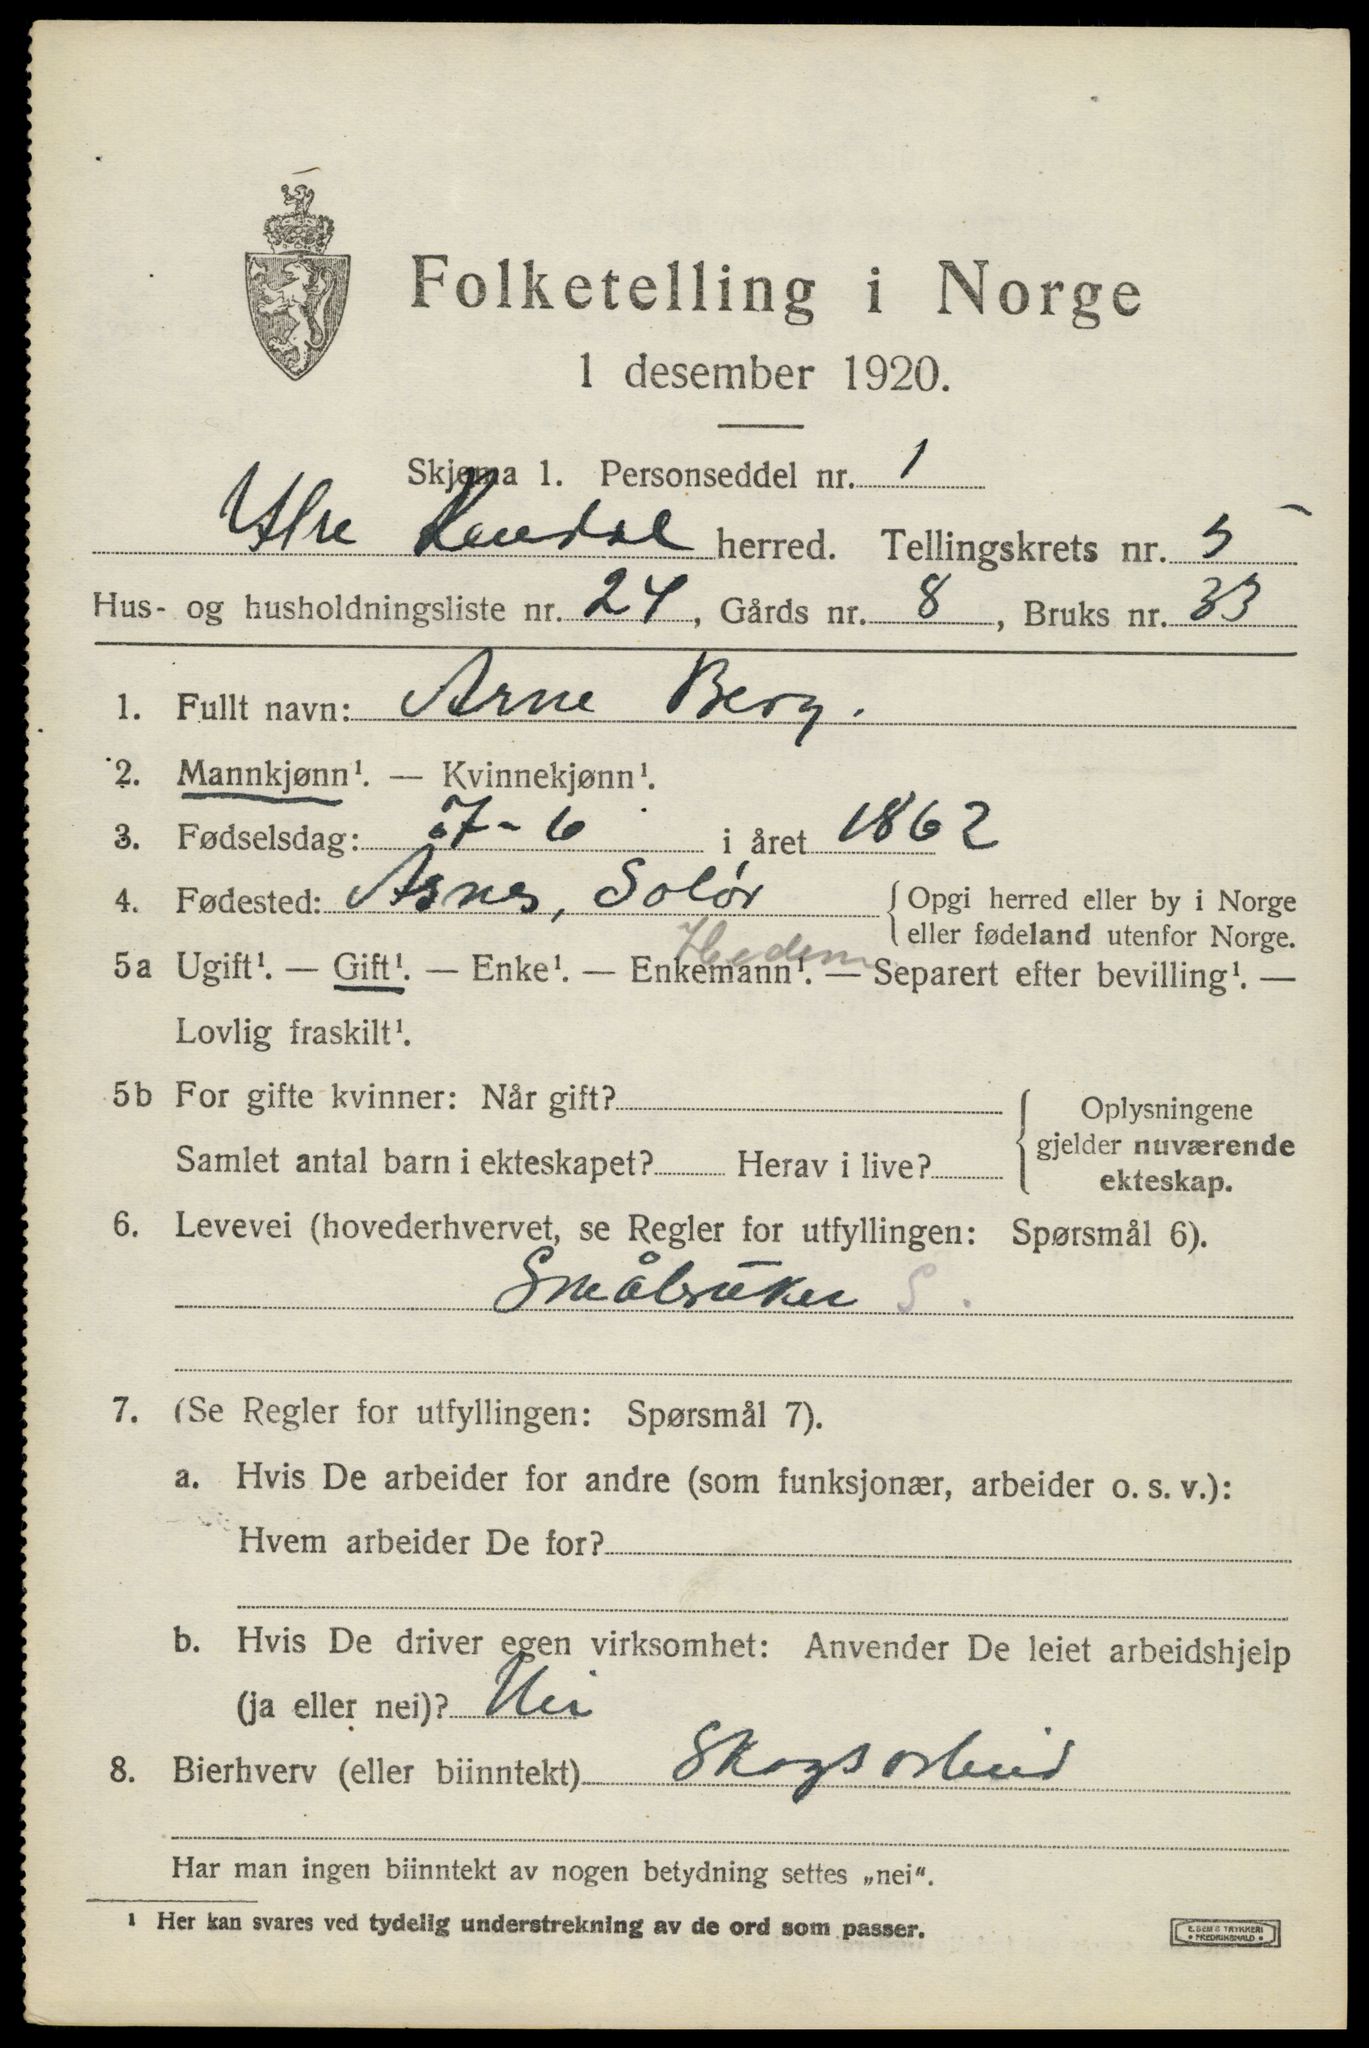 Folketelling i Norge
1 desember 1920.
Skjema 1. Personseddel nr. 1
Ytre Rendal herred. Tellingskrets nr. 5
Hus- og husholdningsliste nr. 24, Gårds nr. 8, Bruks nr. 33
1. Fullt navn: Arne Berg.
2. Mannkjønn¹. — Kvinnekjønn¹.
3. Fødselsdag: 7-6 i året 1862
4. Fødested: Åsnes, Solør { Opgi herred eller by i Norge
eller fødeland utenfor Norge.
Hedem
5a Ugift¹. — Gift¹. — Enke¹. — Enkemann¹. — Separert efter bevilling¹. —
Lovlig fraskilt¹.
5b For gifte kvinner: Når gift? { Oplysningene
gjelder nuværende
Samlet antal barn i ekteskapet? Herav i live?
ekteskap.
6. Levevei (hovederhvervet, se Regler for utfyllingen: Spørsmål 6).
Småbruker S.
7. (Se Regler for utfyllingen: Spørsmål 7).
a. Hvis De arbeider for andre (som funksjonær, arbeider o. s. v.):
Hvem arbeider De for?
b. Hvis De driver egen virksomhet: Anvender De leiet arbeidshjelp
(ja eller nei)? Nei
8. Bierhverv (eller biinntekt) Skogsarbeid
Har man ingen biinntekt av nogen betydning settes „nei“.
¹ Her kan svares ved tydelig understrekning av de ord som passer.
E. SEM'S TRYKKERI
FREDRIKSHALD